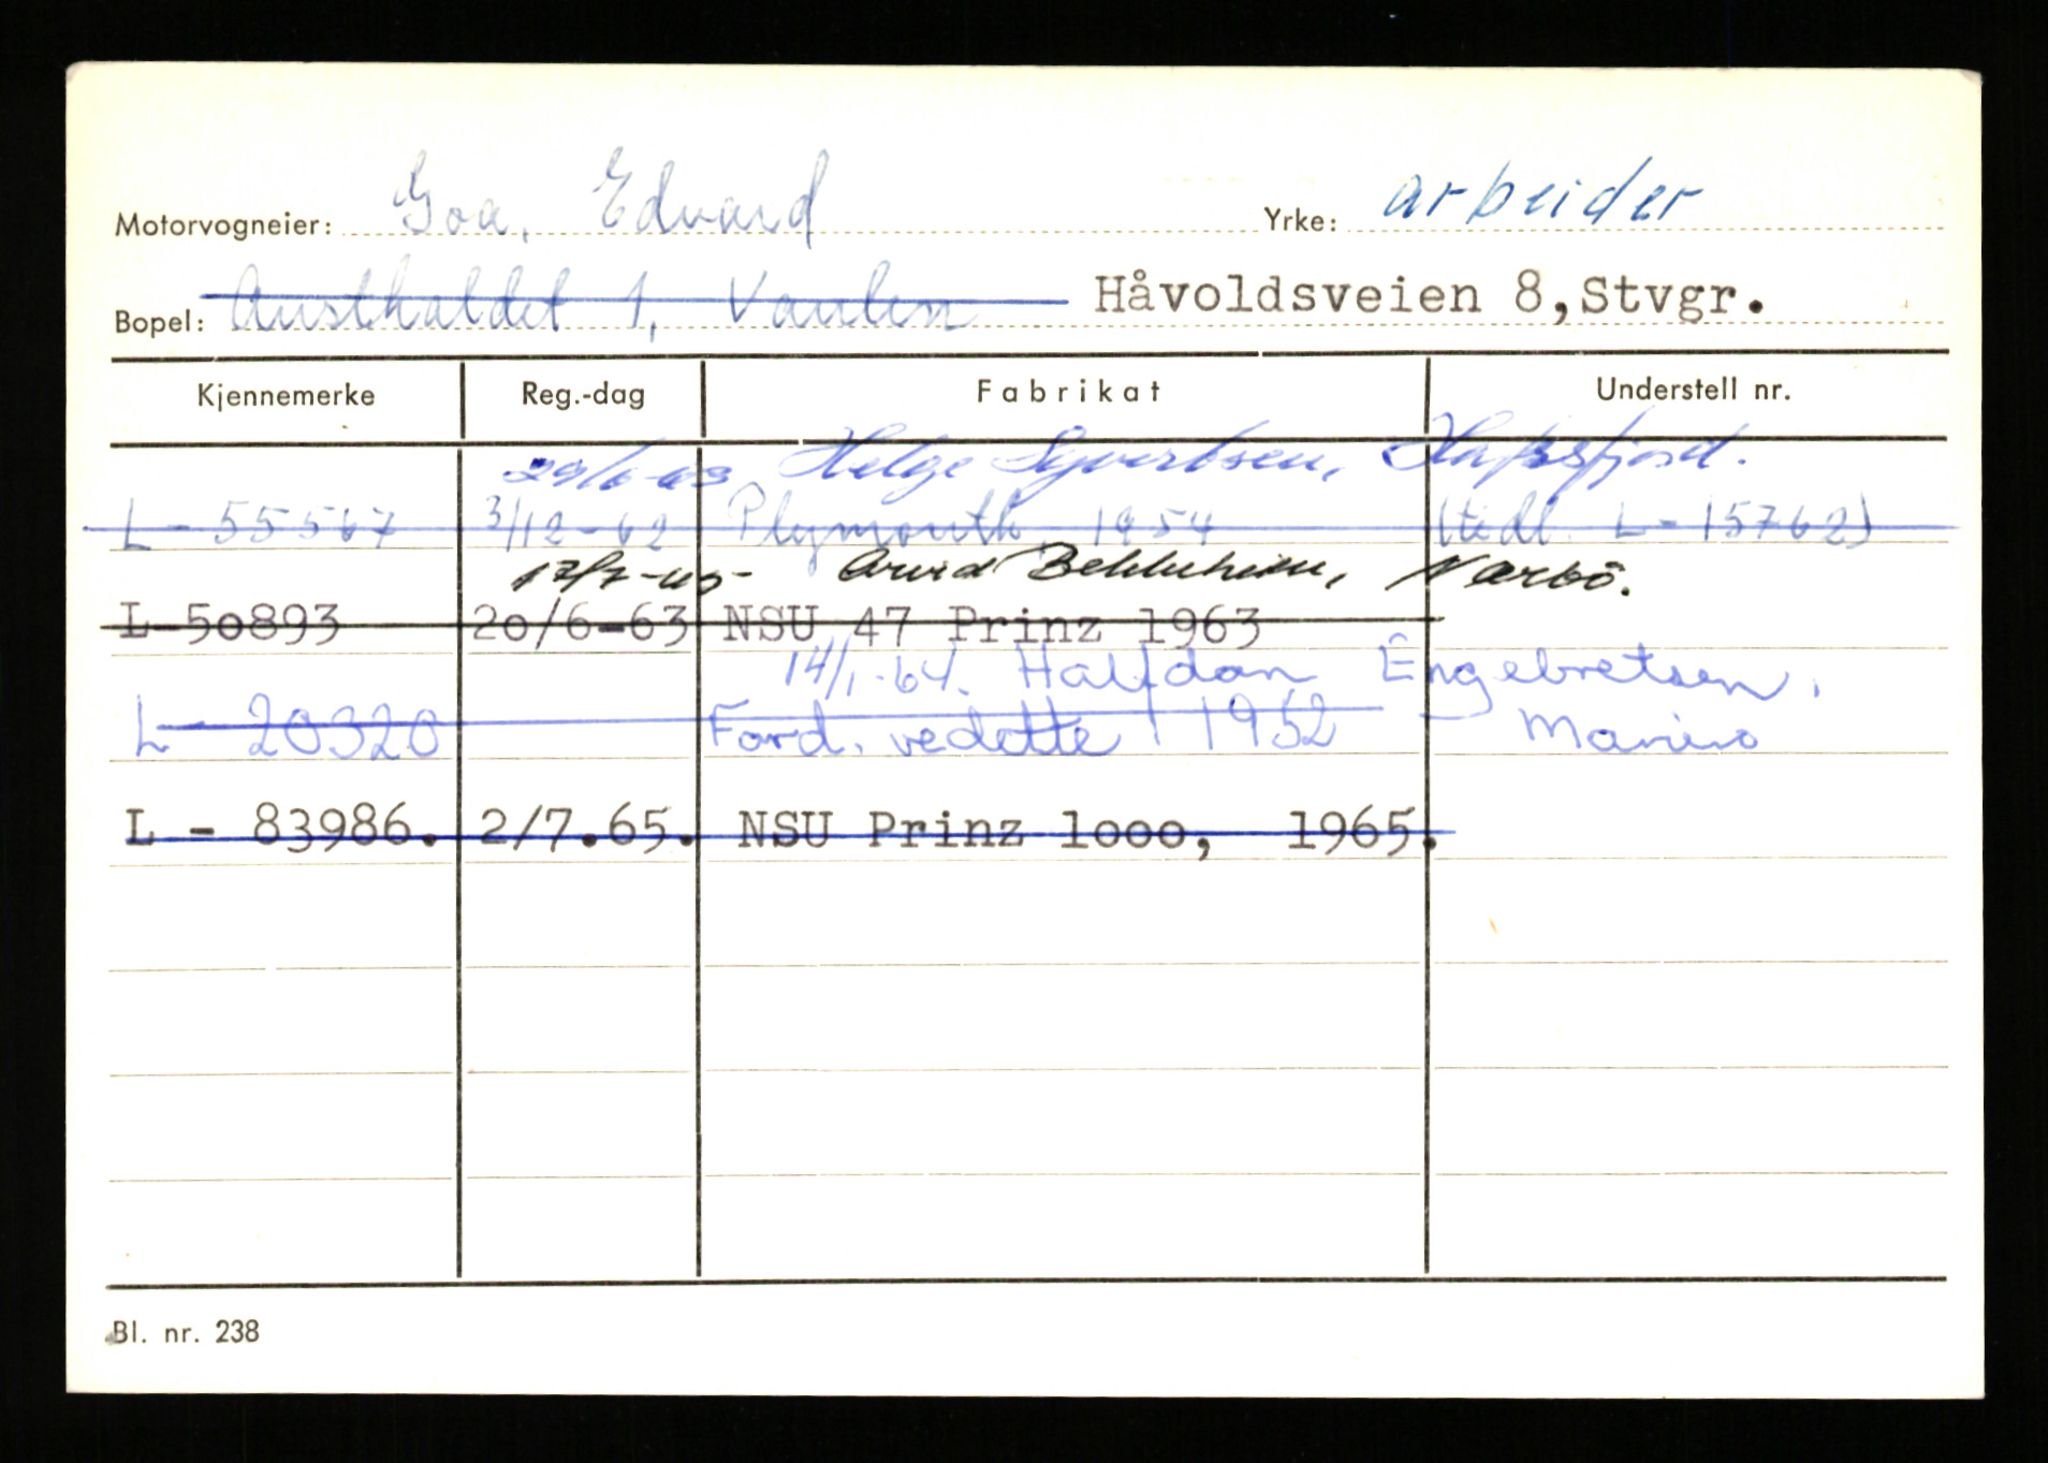 Motorvogneier: Goa, Edvard Yrke: arbeider
Bopel: Austhaldet 1, Vaulen Håvoldsveien 8,Stvgr.
Kjennemerke Reg.-dag Fabrikat Understell nr.
29/6-63 Helge Syvertsen, Hafrsfjord.
L - 55567 3/12-62 Plymouth 1954 (tidl. L-15762)
17/7-65- Arvid Narbö.
L-50893 20/6-63 NSU 47 Prinz 1963
14/1-64. Halfdan Engebretsen,
L - 20320 Ford. vedette 1952 Mariero
L - 83986. 2/7.65. NSU Prinz 1ooo, 1965.
Bl. nr. 238